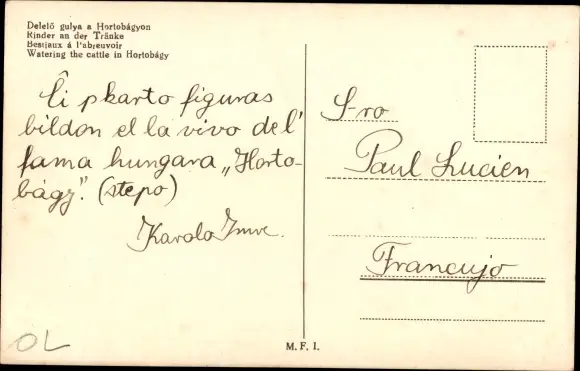 Delelő gulya a Hortobágyon
Rinder an der Tränke
Bestiaux á l'abreuvoir
Watering the cattle in Hortobágy
Ĉi pkarto figuras
bildon el la vivo de l'
fama hungara „Horto-
bágy". (stepo)
Karolo Imre.
S-ro
Paul Lucien
Francujo
OL
M. F. I.